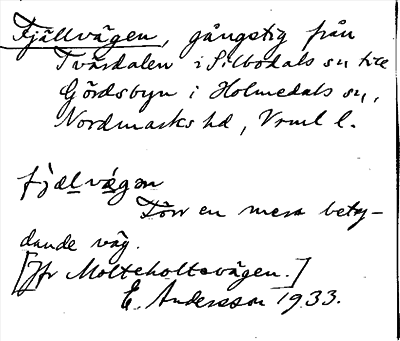 Fjällvägen, gångstig från
Tvärdalen i Silbodals sn till
Gördsbyn i Holmedals sn,
Nordmarks hd, Vrml l.
fjælvæ̀gən
Förr en mera bety-
dande väg.
[Jfr Molteholtsvägen.]
E. Andersson 1933.